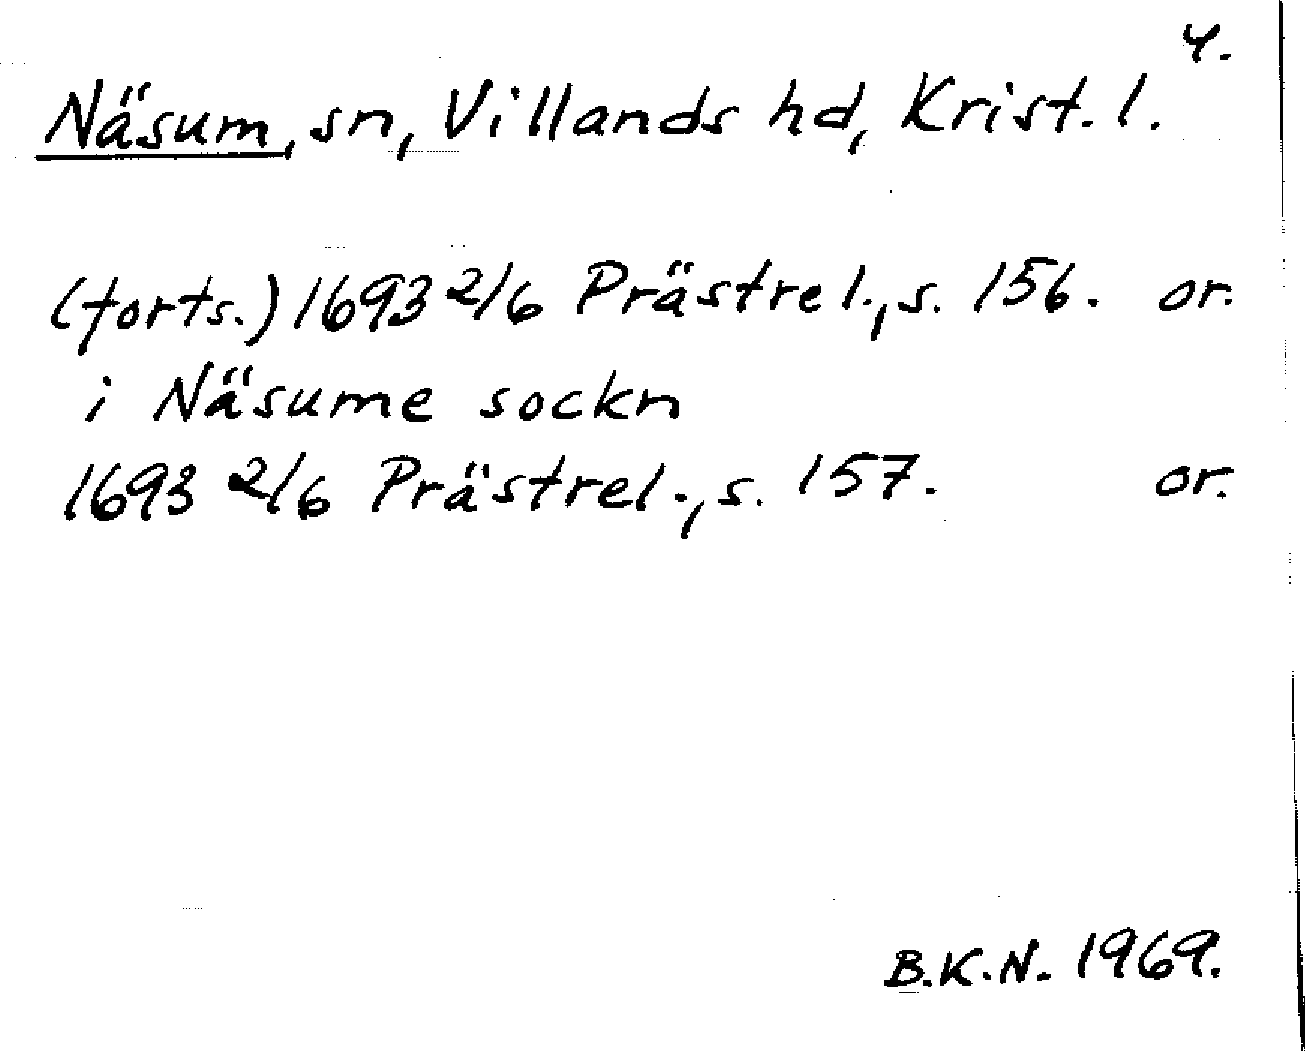 4.
Näsum, sn, Villands hd, Krist. l.
(forts.) 1693 2/6 Prästrel., s. 156. or.
i Näsume sockn
1693 2/6 Prästrel., s. 157. or.
B.K.N. 1969.